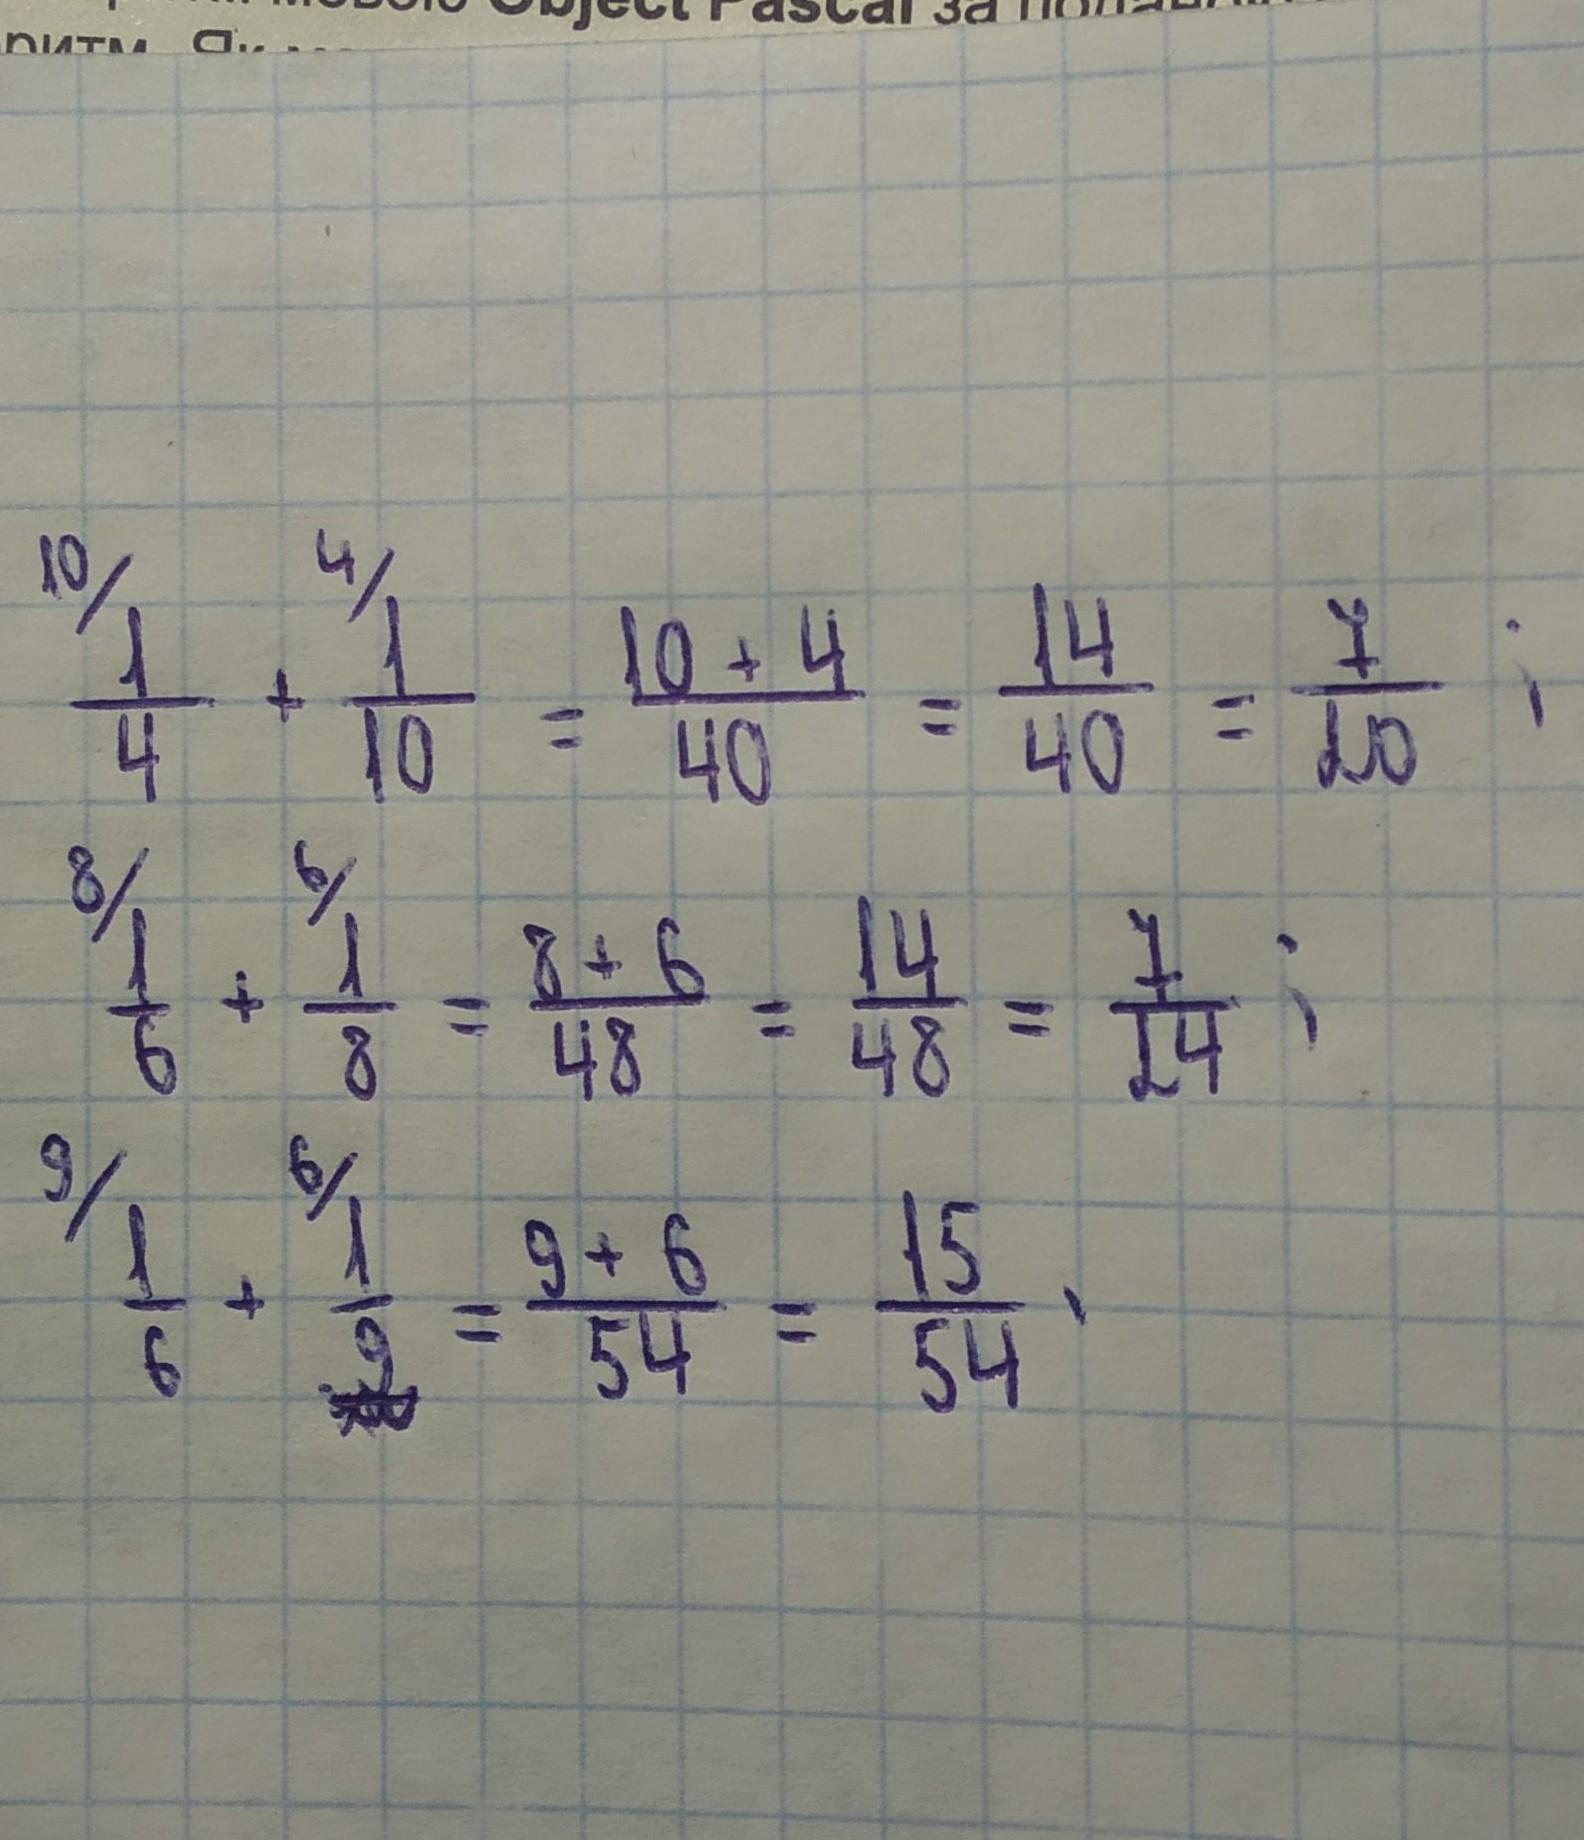 Object Pascal за
ритм. Як
10/ 1/4 + 4/ 1/10 = (10 + 4)/40 = 14/40 = 7/20 ;
8/ 1/6 + 6/ 1/8 = (8 + 6)/48 = 14/48 = 7/24 ;
9/ 1/6 + 6/ 1/9 = (9 + 6)/54 = 15/54 ,